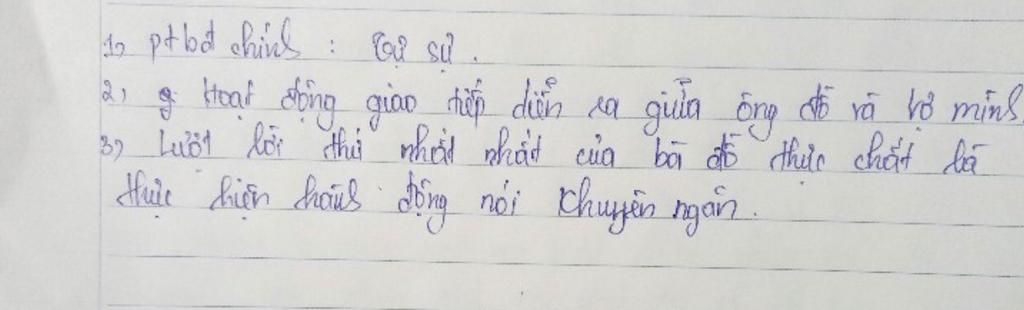 1, ptbđ chính : Tự sự .
2, Hoạt động giao tiếp diễn ra giữa ông đồ và vợ mình.
3, Lượt lời thứ nhất nhất của bà đồ thực chất là
thực hiện hành động nói khuyên ngăn .